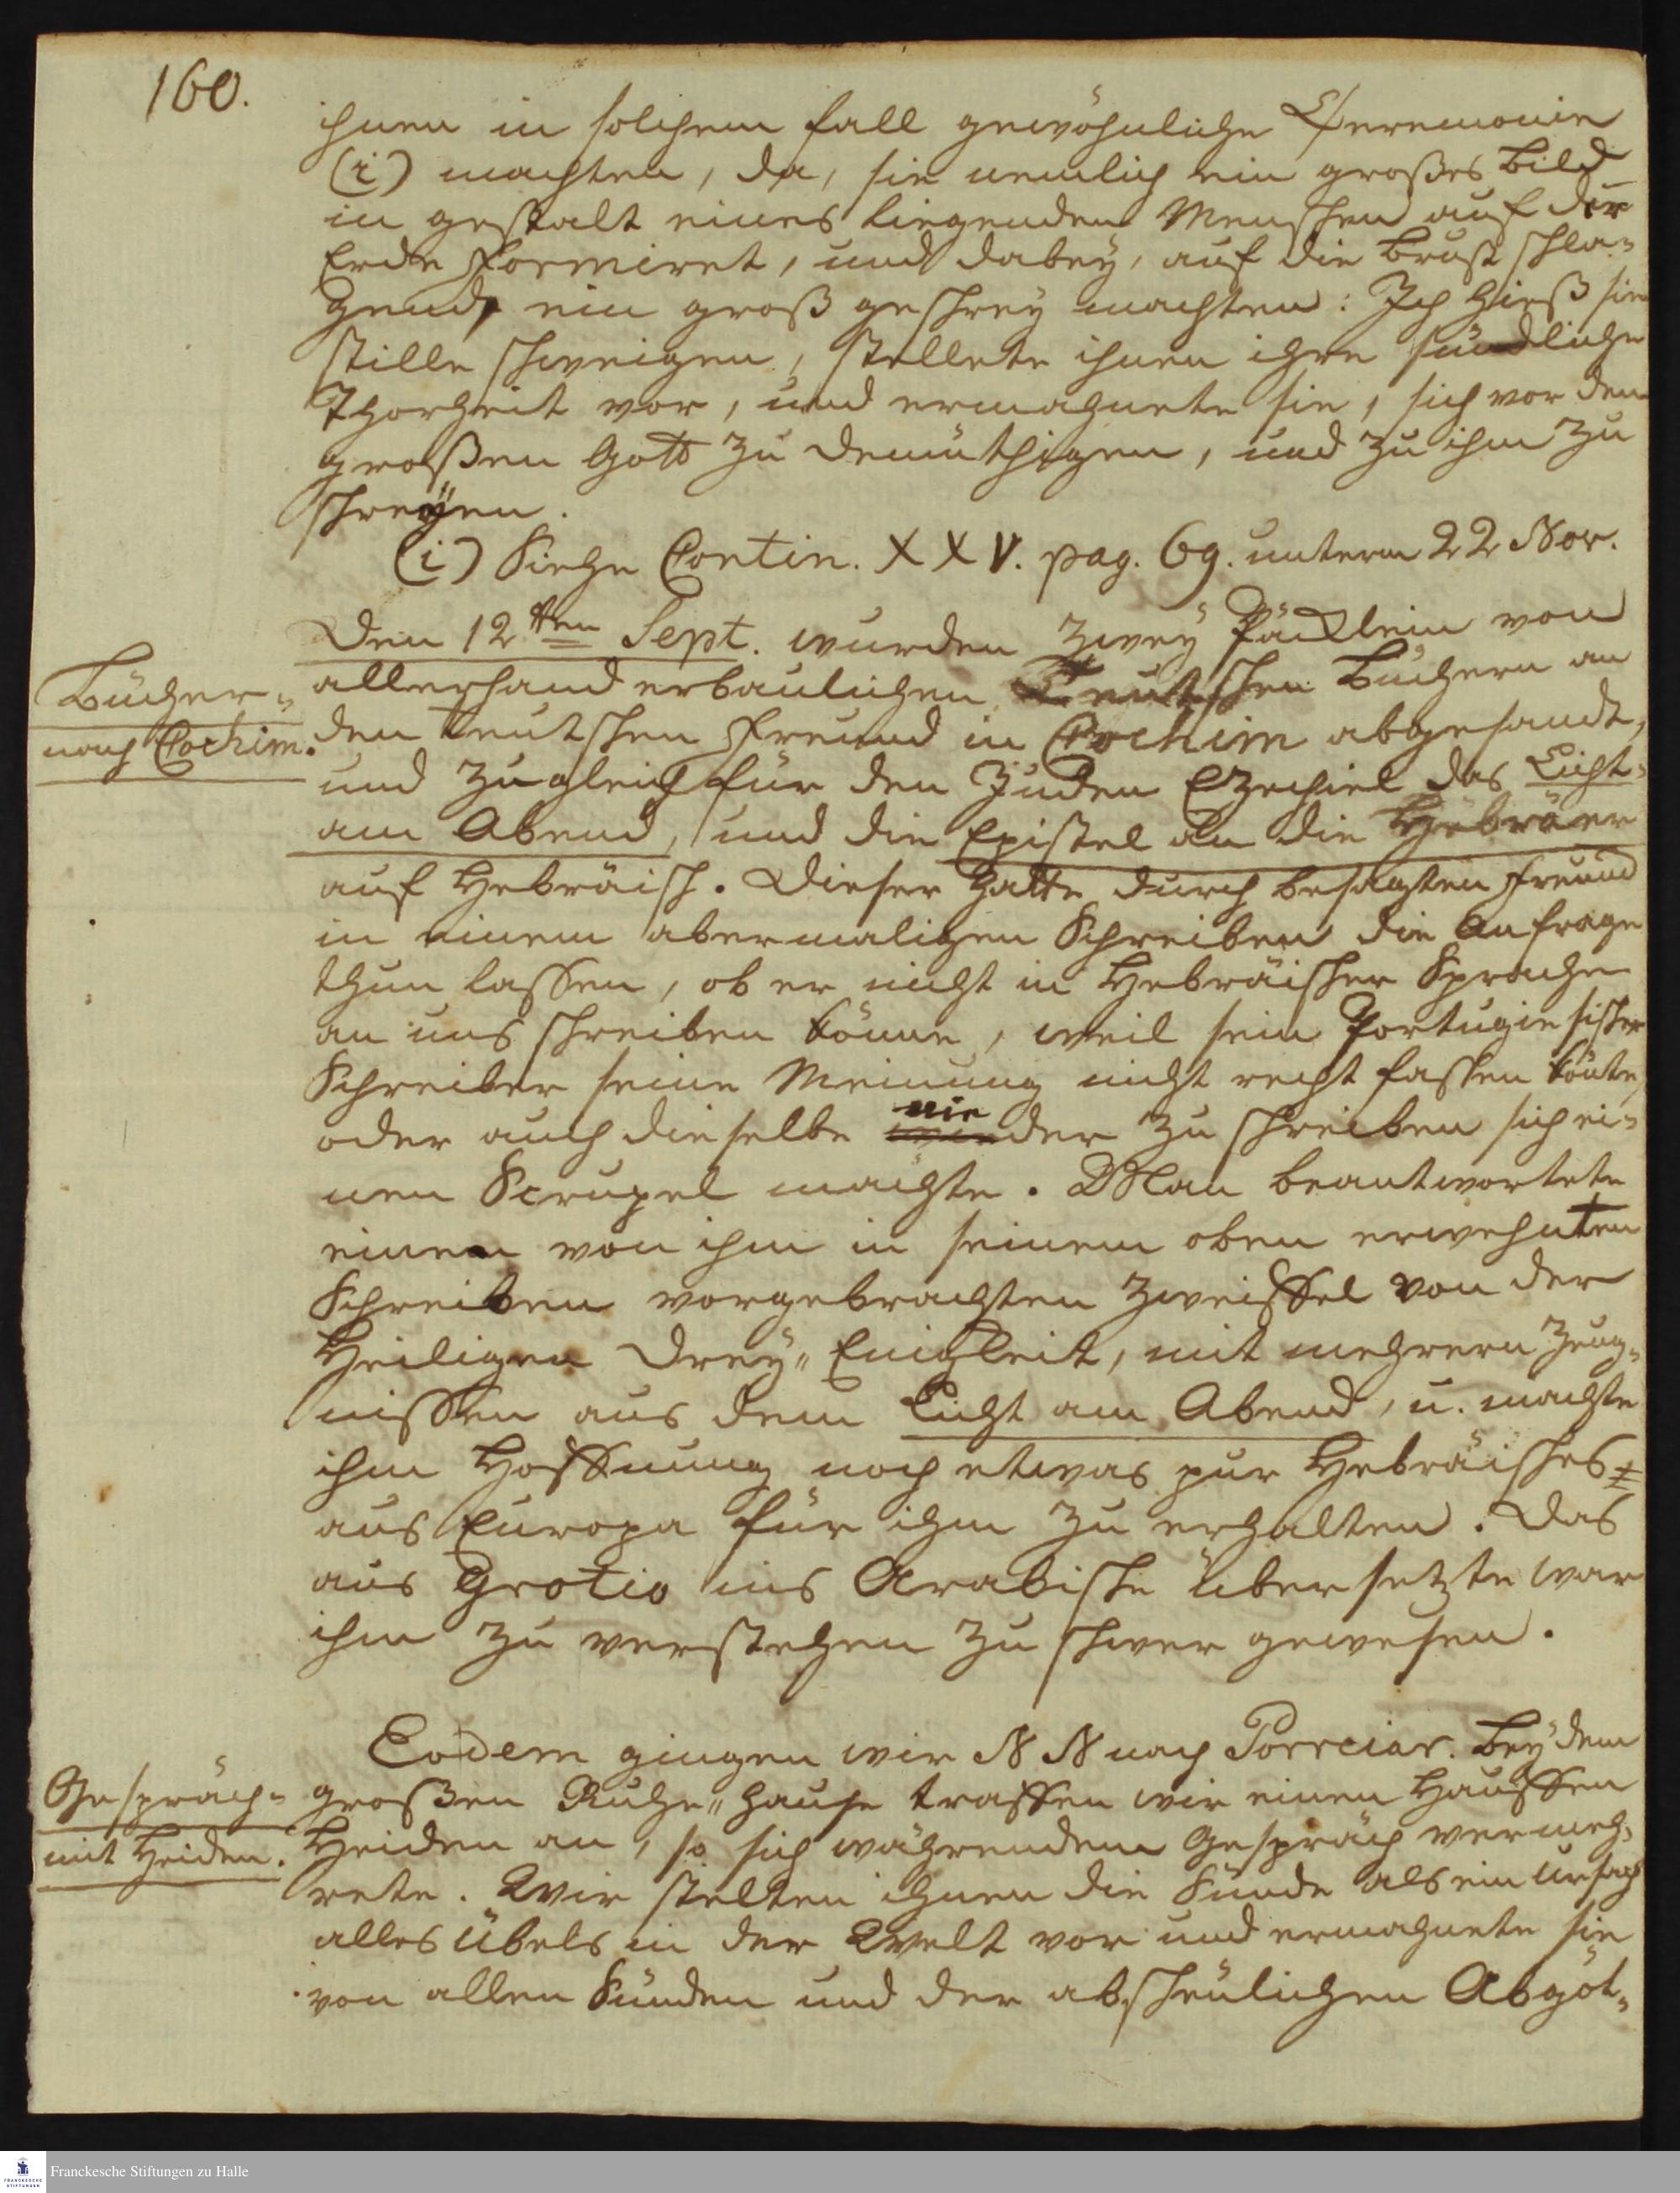 160.
ihnen in solchem fall gewöhnliche Ceremonie
(i) machten, da, sie nemlich ein großes Bild
in gestalt eines liegenden Menschen auf der
Erde formiret, und dabey, auf die Brust schla-
gend, ein groß geschrey machten: Ich hieß sie
stille schweigen, stellete ihnen ihre sündliche
Thorheit vor, und ermahnete sie, sich vor dem
großen Gott zu demüthigen, und zu ihm zu
schreyen.
(i) Siehe Contin. XXV. pag. 69. unterm 22 Nov.
Bücher-
nach Cochim.
Den 12ten Sept. wurden zwey Päcklein von
allerhand erbaulichen Teutschen Büchern an
den teutschen Freund in Cochim abgesandt,
und zugleich für den Juden Ezechiel das Licht-
am Abend, und die Epistel an die Hebräer
auf Hebräisch. Dieser hatte durch besagten Freund
in einem abermaligen Schreiben die Anfrage
thun lassen, ob er nicht in Hebräischer Sprache
an uns schreiben könne, weil sein Portugiesischer
Schreiber seine Meinung nicht recht fassen könte,
oder auch dieselbe nieder zu schreiben sich ei-
nen Scrupel machte. Man beantwortete
einen von ihm in seinem oben erwehnten
Schreiben vorgebrachten Zweiffel von der
Heiligen Drey-Einigkeit, mit mehrern Zeug-
nissen aus dem Licht am Abend, u. machte
ihm Hoffnung noch etwas pur Hebräisches
aus Europa für ihm zu erhalten. Das
aus Grotio ins Arabische übersetzte war
ihm zu verstehen zu schwer gewesen.
Gespräch-
mit Heiden.
Eodem gingen wir N N nach Porreiar. Bey dem
großen Ruhe-hause traffen wir einen Hauffen
Heiden an, so sich währendem Gespräch vermeh-
rete. Wir stelten ihnen die Sünde als ein ursach
alles Übels in der Welt vor und ermahnete sie
von allen Sünden und der abscheulichen Abgöt-
Franckesche Stiftungen zu Halle
FRANCKESCHE
STIFTUNGEN